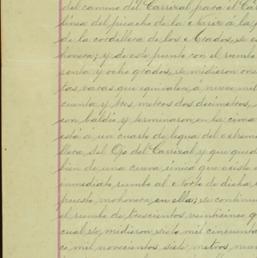 del camino del Carrizal para el Ca
linea del picacho de la
de la cordillera de los Azados, se es
honera; y de este punto con el rumbo
senta y ocho grados, se midieron cien
tas varas que equivalen a nueve mil
cuenta y tres metros dos decimetros,
con baldio y terminaron en la cima
está a un cuarto de legua del estremo
lleca del Ojo del Carrizal y que qued
bien de una cueva única que existe e
inmediato rumbo al Norte de dicha,
puesto mohonera, en ella; se continu
el rumbo de trescientos veintiocho g
cual se midieron siete mil cincuenta
co mil novecientos siete metros, nu